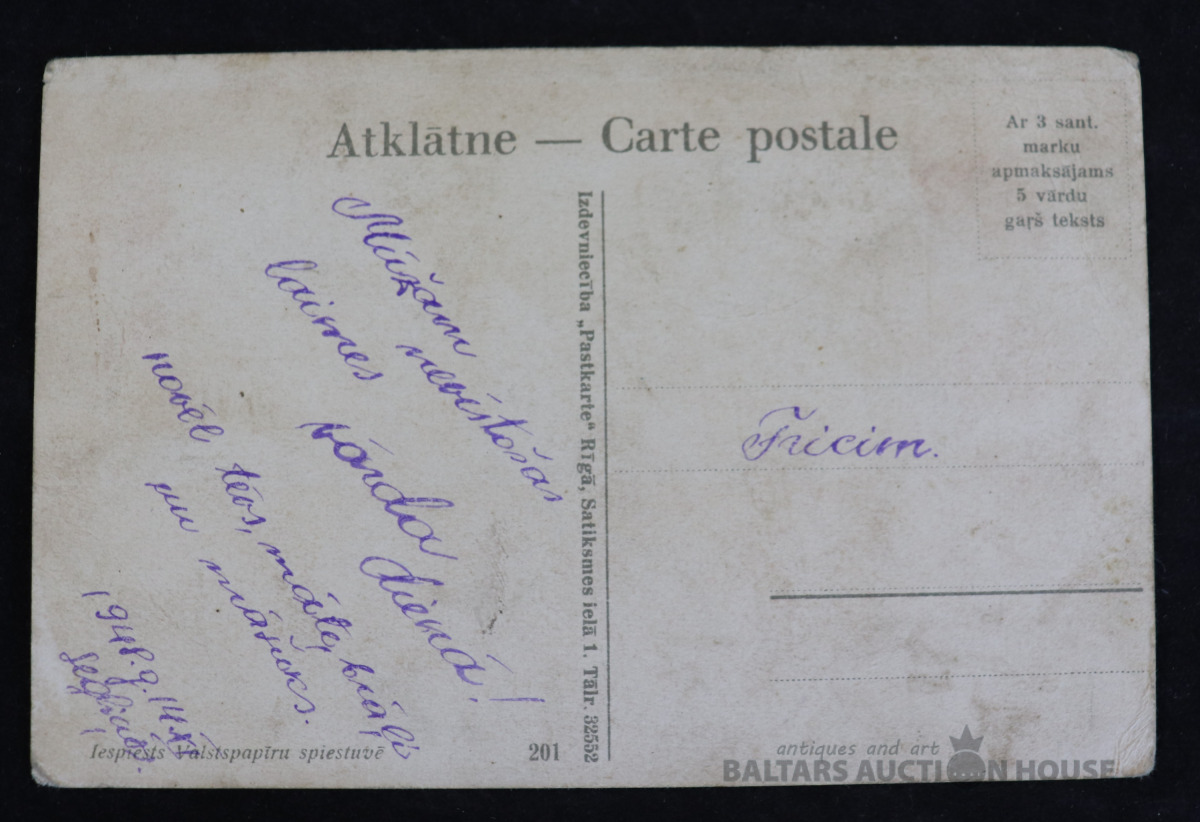 Atklātne — Carte postale
Ar 3 sant.
marku
apmaksājams
5 vārdu
gaŗš teksts
Mūžam nevīstošas
laimes vārda dienā!
novēl tēvs, māte, brāļi
un māsuks.
Izdevniecība „Pastkarte" Rīgā, Satiksmes ielā 1. Tālr. 32552
Fricim.
Iespiests Valstspapīru spiestuvē
201
antiques and art
BALTARS AUCTION HOUSE